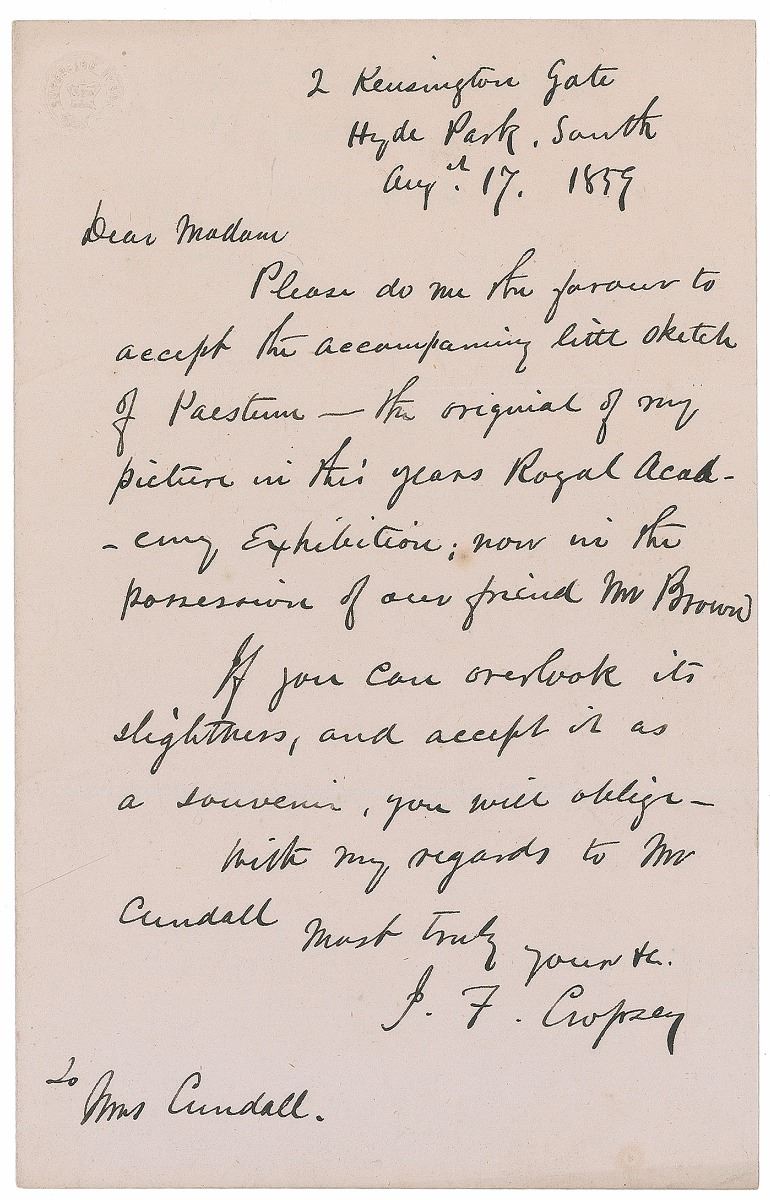 2 Kensington Gate
Hyde Park. South
Augst. 17. 1859
Dear Madam
Please do me the favour to
accept the accompaning little sketch
of Paestum — the original of my
picture in this years Royal Acad-
-emy Exhibition; now in the
possession of our friend Mr Brown
If you can overlook its
slightness, and accept it as
a souvenir, you will oblige—
With my regards to Mr
Cundall
Most truly yours &c.
J. F. Cropsey
To
Mrs Cundall.